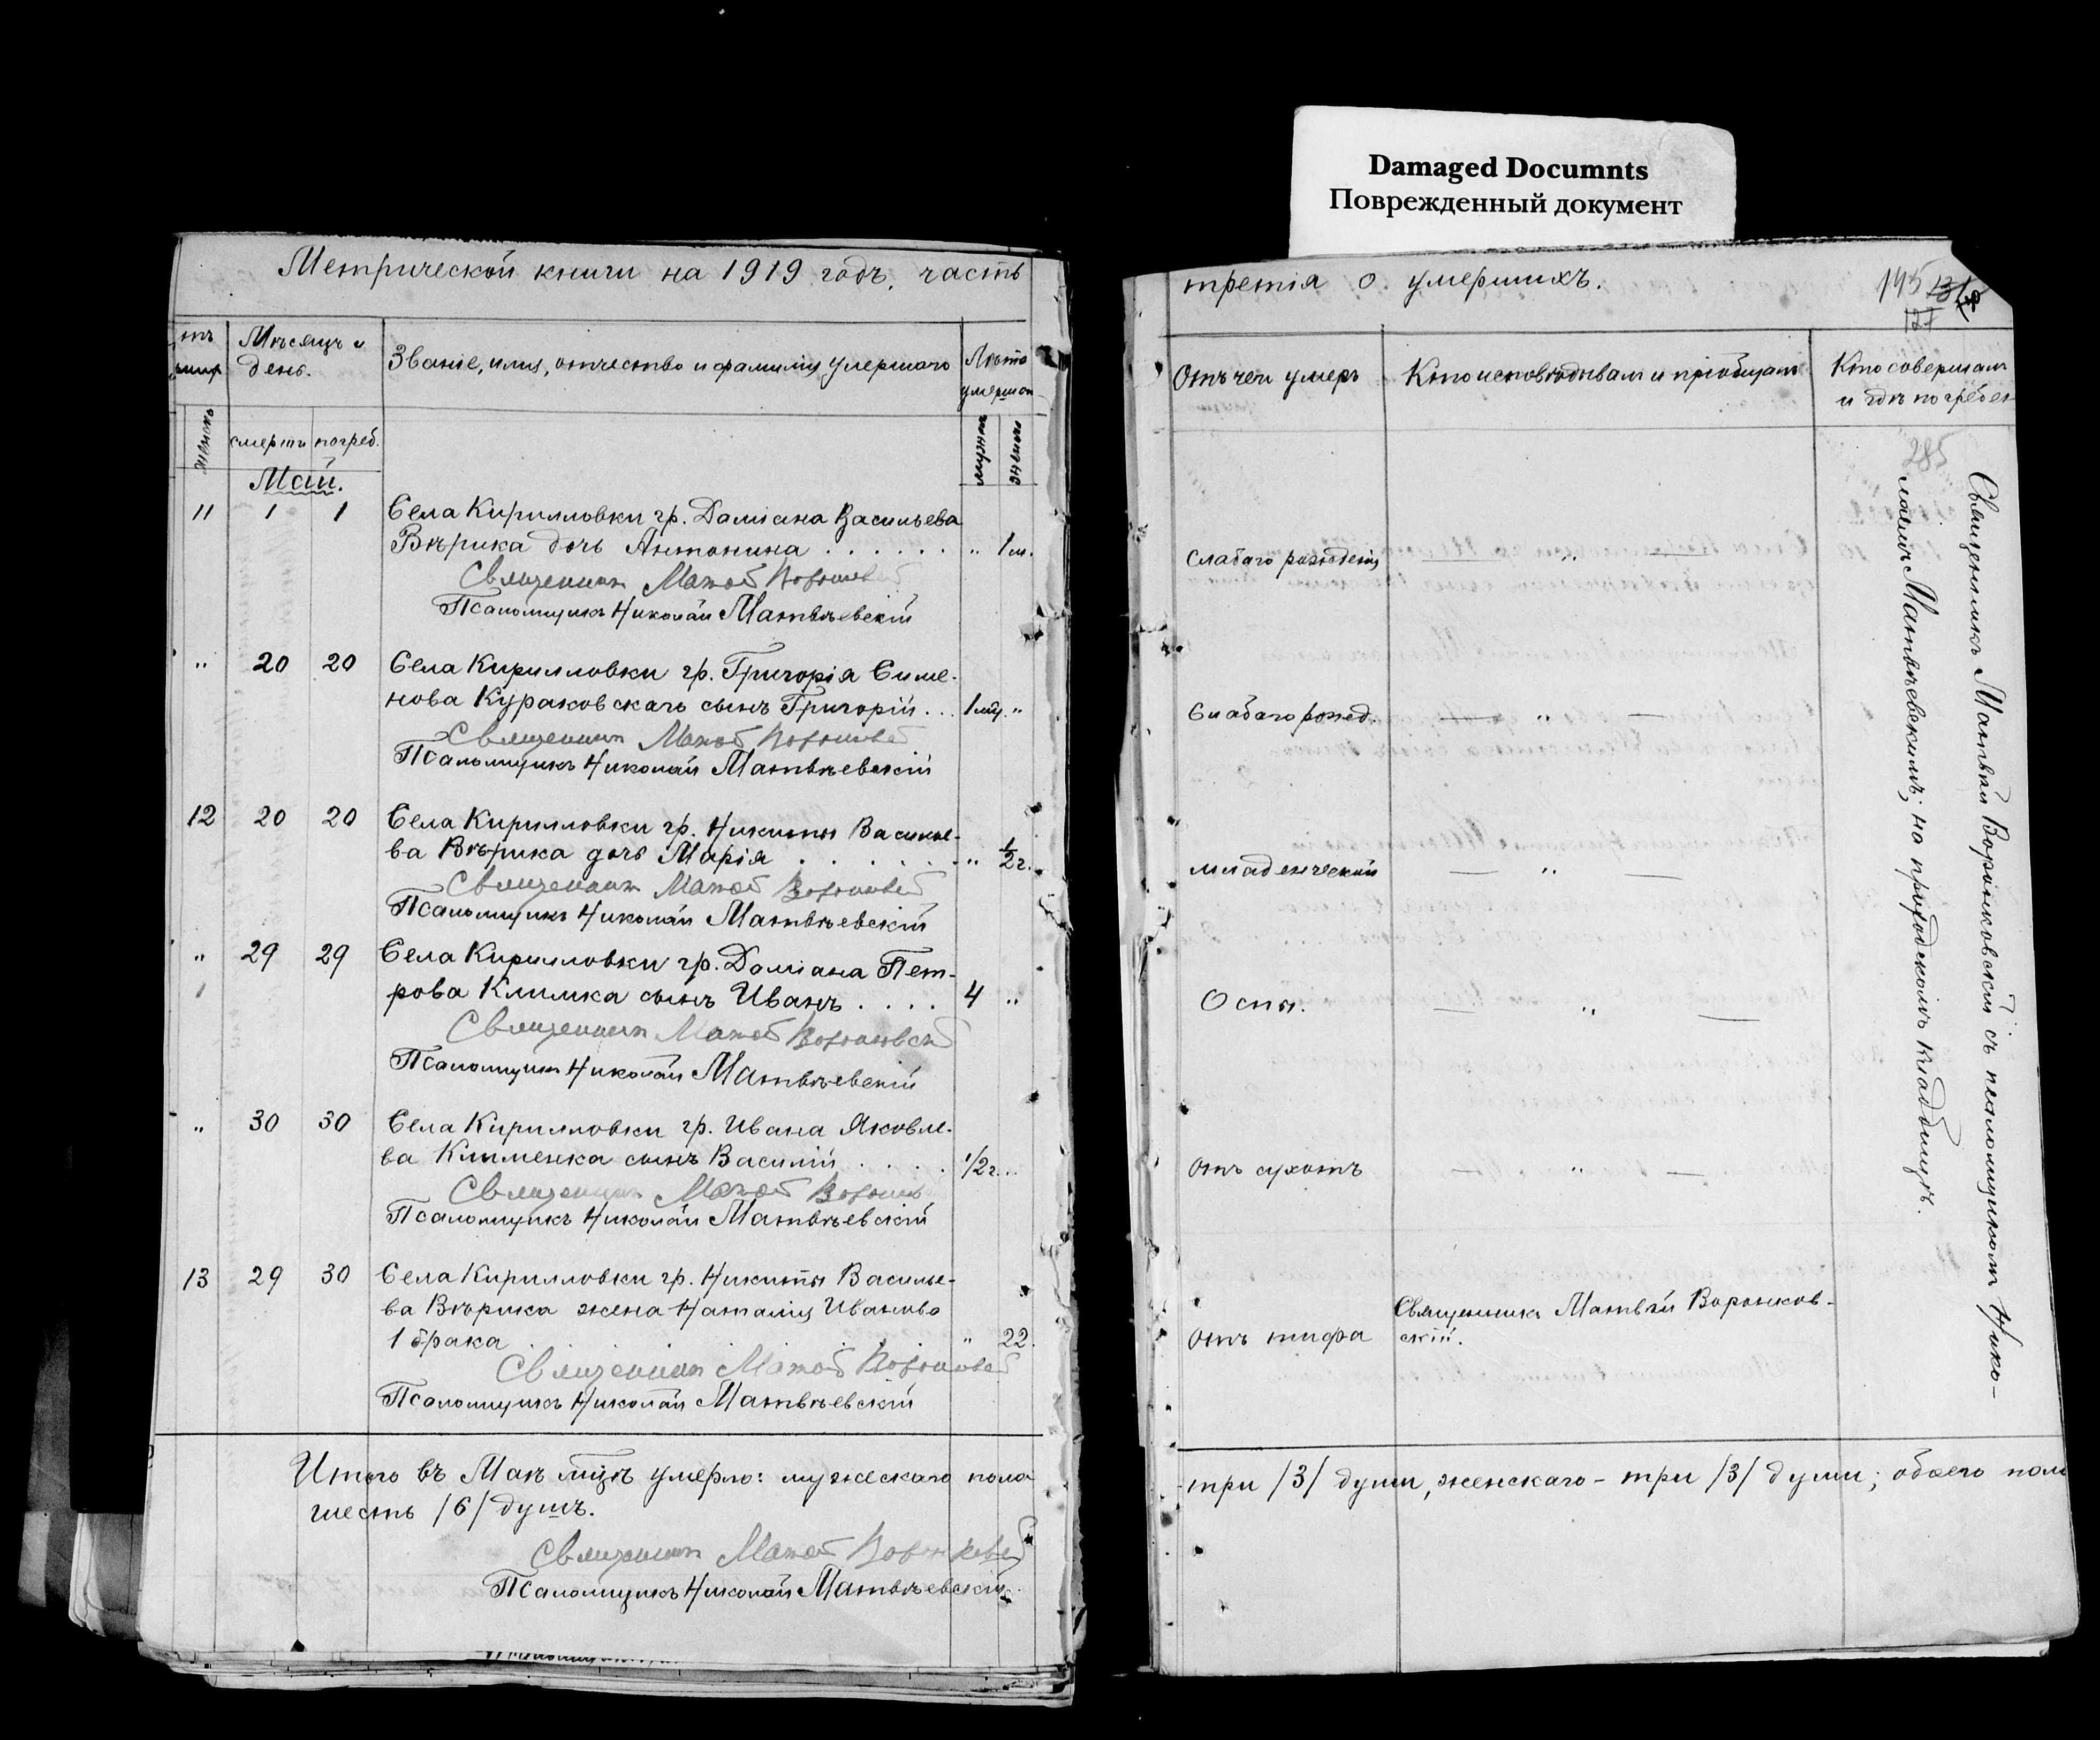 Damaged Documnts
Поврежденный документ
Метрической книги на 1919 годъ, часть
Мѣсяцъ и
день.
Званіе, имя, отчество и фамилія умершаго
Лѣта
умершаго
женск
смерти
погреб.
мужеск
женск
Май.
11 1 1 Села Кирилловки гр. Даміана Васильева
Вѣрика дочь Антонина . . . . . . " 1 м.
Священникъ Матѳей
Псаломщикъ Николай Матвѣевскій
" 20 20 Села Кирилловки гр. Григорія Симе-
нова Кураковскаго сынъ Григорій . . . 1 мц. "
Священникъ Матѳей
Псаломщикъ Николай Матвѣевскій
12 20 20 Села Кирилловки гр. Никиты Василье-
ва Вѣрика дочь Марія . . . . . . " 1/2 г.
Священникъ Матѳей
Псаломщикъ Николай Матвѣевскій
" 29 29 Села Кирилловки гр. Даміана Пет-
рова Климка сынъ Иванъ . . . . 4 "
Священникъ Матѳей
Псаломщикъ Николай Матвѣевскій
" 30 30 Села Кирилловки гр. Ивана Яковле-
ва Клименка сынъ Василій . . . . 1/2 г. "
Священникъ Матѳей
Псаломщикъ Николай Матвѣевскій
13 29 30 Села Кирилловки гр. Никиты Василье-
ва Вѣрика жена Наталія Иванова
1 брака . . . " 22.
Священникъ Матѳей
Псаломщикъ Николай Матвѣевскій
Итого въ Маѣ м-цѣ умерло: мужескаго пола
шесть /6/ душъ.
Священникъ Матѳей
Псаломщикъ Николай Матвѣевскій
третія о умершихъ.
145
Отъ чего умеръ
Кто исповѣдывалъ и пріобщалъ
Кто совершалъ
и гдѣ погребен
285
Слабаго рожденія — " —
Слабаго рожд. — " —
младенческой — " —
Оспы. — " —
отъ сухотъ — " —
отъ тифа
Священникъ Матвѣй Воронков-
скій.
Священникъ Матвѣй Воронковскій съ псаломщикомъ Нико-
лаемъ Матвѣевскимъ; на приходскомъ кладбищѣ.
три /3/ души, женскаго - три /3/ души; обоего пола